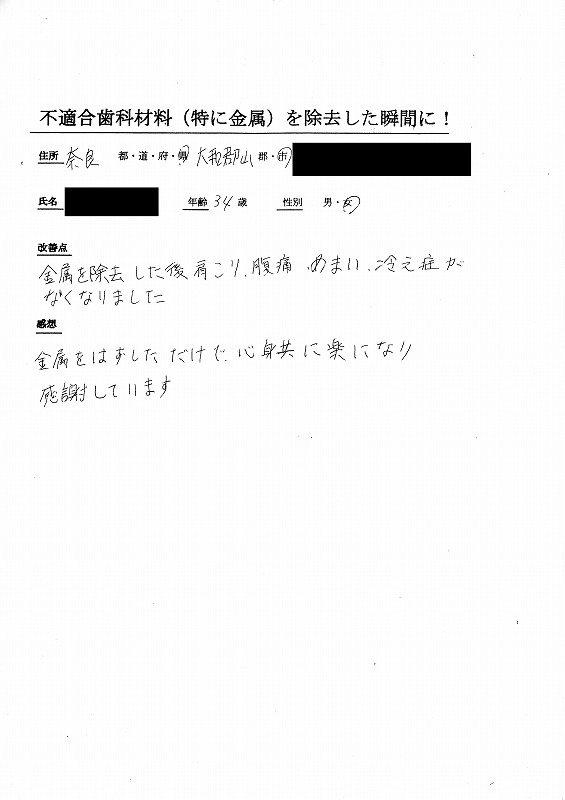 不適合歯科材料（特に金属）を除去した瞬間に！
住所 奈良 都・道・府・県 大和郡山 郡・市
氏名 年齢 34 歳 性別 男・女
改善点
金属を除去した後肩こり、腹痛、めまい、冷え症が
なくなりました
感想
金属をはずしただけで、心身共に楽になり
感謝しています